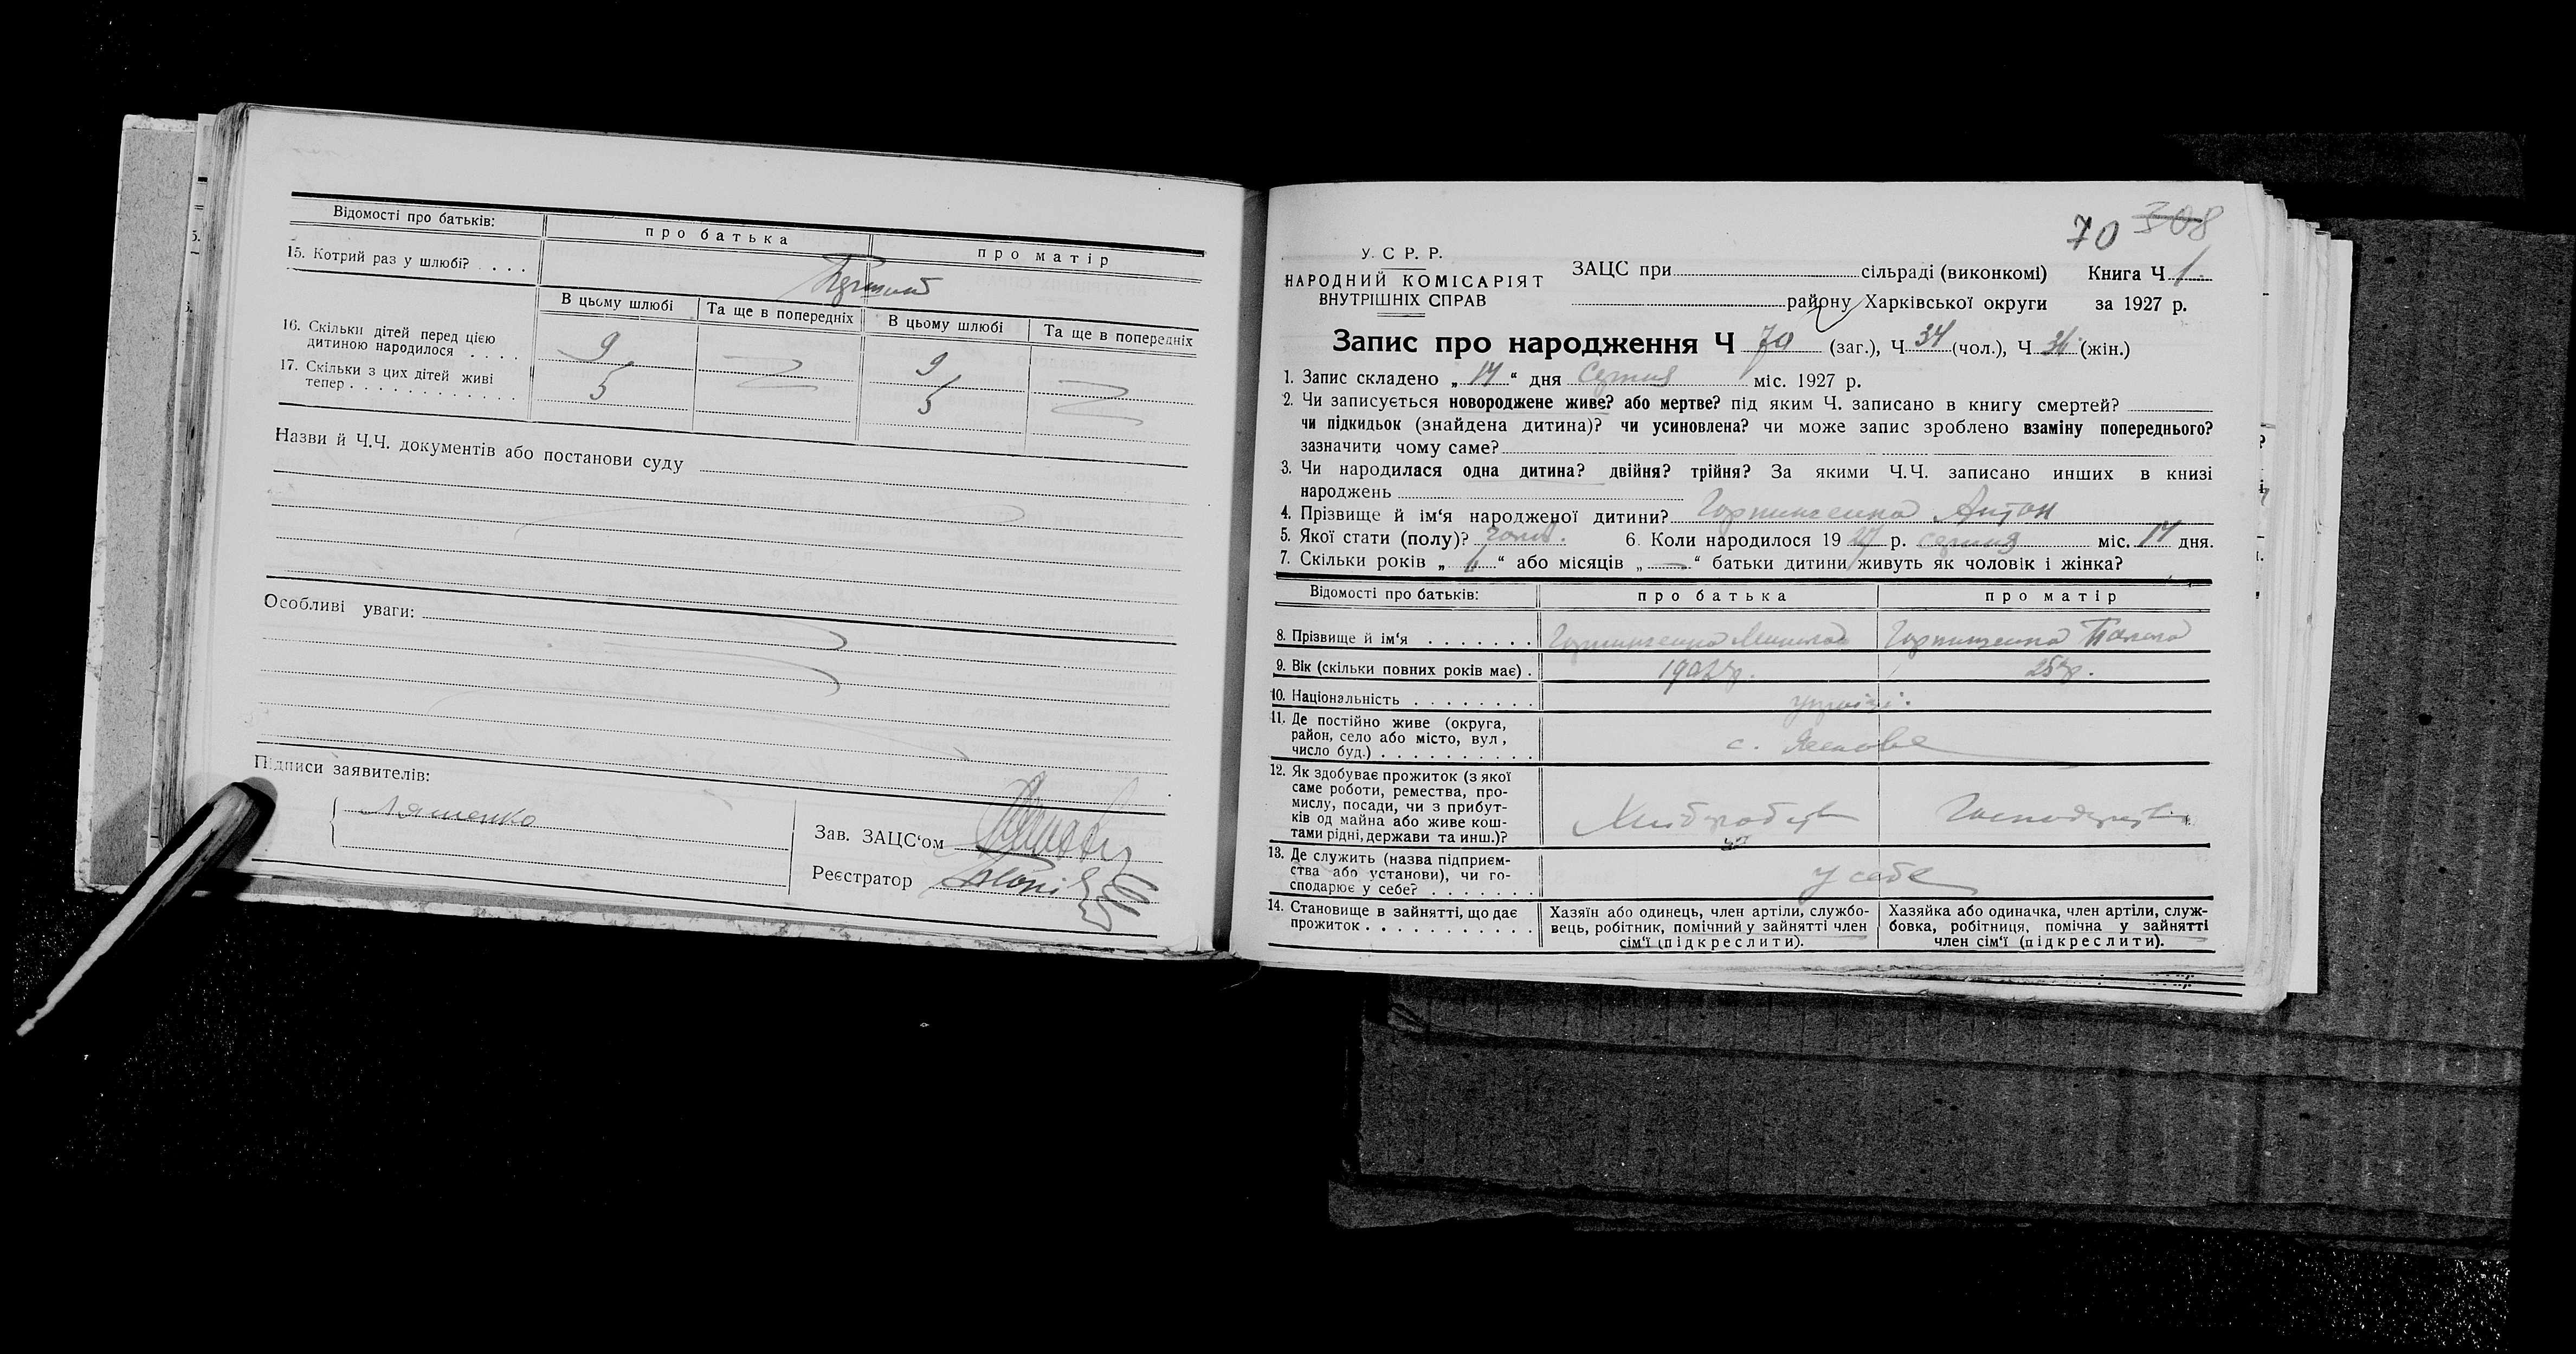 Відомості про батьків: про батька про матір
15. Котрий раз у шлюбі? . . . .
В цьому шлюбі Та ще в попередніх В цьому шлюбі Та ще в попередніх
16. Скільки дітей перед цією
дитиною народилося . . . . 9 9
17. Скільки з цих дітей живі
тепер . . . . . . . . . . . . 5 5
Назви й Ч.Ч. документів або постанови суду
Особливі уваги:
Підписи заявителів:
Ляшенко
Зав. ЗАЦС'ом
Реєстратор
70 308
У. С. Р. Р.
НАРОДНИЙ КОМІСАРІЯТ
ВНУТРІШНІХ СПРАВ
ЗАЦС при сільраді (виконкомі) Книга Ч 1.
району Харківської округи за 1927 р.
Запис про народження Ч 70 (заг.), Ч 34 (чол.), Ч 36 (жін.)
1. Запис складено „ 17 “ дня серпня міс. 1927 р.
2. Чи записується новороджене живе? або мертве? під яким Ч. записано в книгу смертей?
чи підкидьок (знайдена дитина)? чи усиновлена? чи може запис зроблено взаміну попереднього?
зазначити чому саме?
3. Чи народилася одна дитина? двійня? трійня? За якими Ч.Ч. записано инших в книзі
народжень
4. Прізвище й ім'я народженої дитини? Горпинченко Антон
5. Якої стати (полу)? чолов. 6. Коли народилося 19 27 р. серпня міс. 17 дня.
7. Скільки років „ 6 “ або місяців „ — “ батьки дитини живуть як чоловік і жінка?
Відомості про батьків: про батька про матір
8. Прізвище й ім'я . . . . . . . Горпинченко Горпинченко
9. Вік (скільки повних років має) . 25 р.
10. Національність . . . . . . . .
11. Де постійно живе (округа,
район, село або місто, вул,
число буд.) . . . . . . . . . . с.
12. Як здобуває прожиток (з якої
саме роботи, ремества, про-
мислу, посади, чи з прибут-
ків од майна або живе кош-
тами рідні, держави та инш.)? Хліборобств Господарств
13. Де служить (назва підприєм-
ства або установи), чи го-
сподарює у себе? . . . . . . . у себе
14. Становище в зайнятті, що дає
прожиток . . . . . . . . . . . .
Хазяїн або одинець, член артілі, службо-
вець, робітник, помічний у зайнятті член
сім'ї (підкреслити).
Хазяйка або одиначка, член артілі, служ-
бовка, робітниця, помічна у зайнятті
член сім'ї (підкреслити).